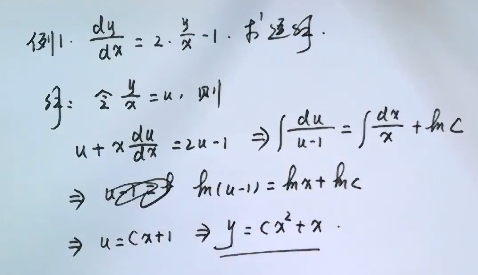 例1. dy/dx = 2·y/x - 1. 求通解.
解: 令 y/x = u, 则
u + x du/dx = 2u - 1 ⇒ ∫ du/(u-1) = ∫ dx/x + ln C
⇒ ln(u-1) = ln x + ln C
⇒ u = Cx + 1 ⇒ y = Cx² + x.